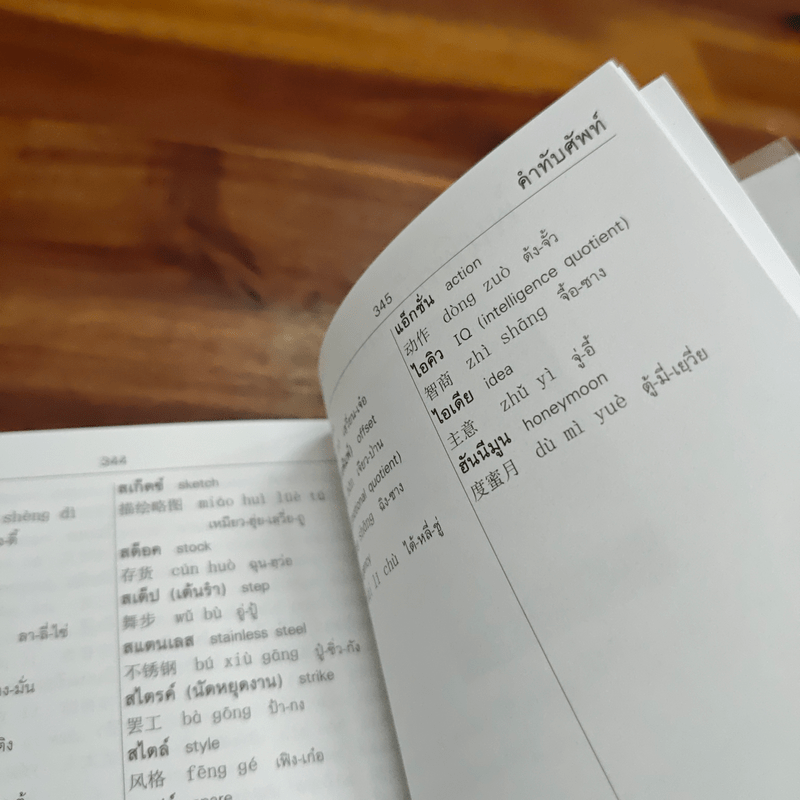 344
shēng dì
ลา-ลี่-ไซ่
สเก็ตช์ sketch
描绘略图 miáo huì lüè tú
เหมียว-ฮุ่ย-เลวี่ย-ถู
สต๊อค stock
存货 cún huò ฉุน-ฮั่วะ
สเต็ป (เต้นรำ) step
舞步 wǔ bù อู่-ปู้
สแตนเลส stainless steel
不锈钢 bú xiù gāng ปู๋-ซิ่ว-กัง
สไตรค์ (นัดหยุดงาน) strike
罢工 bà gōng ป้า-กง
สไตล์ style
风格 fēng gé เฟิง-เก๋อ
คำทับศัพท์
345
offset
quotient)
ฉิง-ซาง
lì chù ไต้-หลี่-ชู่
แอ็กชั่น action
动作 dòng zuò ต้ง-จั้ว
ไอคิว IQ (intelligence quotient)
智商 zhì shāng จื้อ-ซาง
ไอเดีย idea
主意 zhǔ yì จู่-อี้
ฮันนีมูน honeymoon
度蜜月 dù mì yuè ตู้-มี่-เยฺวี่ย